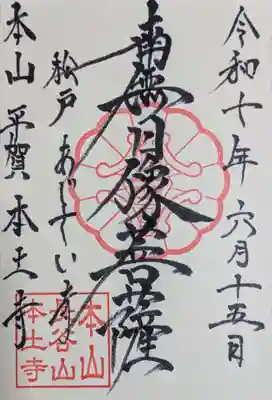 令和七年六月十五日
南無日像菩薩
松戸あじさい寺
本山 平賀 本土寺
本山
長谷山
本土寺